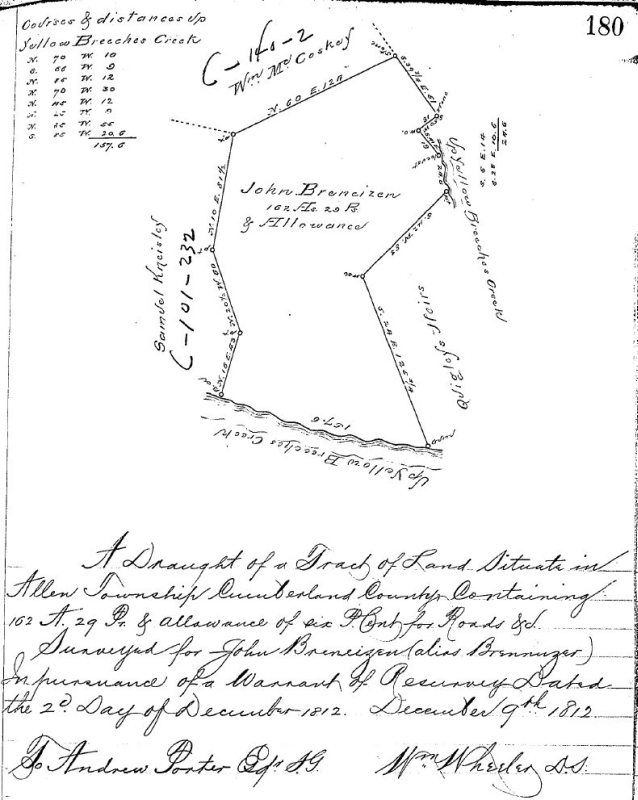 180
Courses & distances up
Yellow Breeches Creek
N. 70 W. 10
S. 66 W. 9
N. 86 W. 12
N. 70 W. 30
N. 45 W. 12
W. 9
W. 55
S. 85 W. 20.6
157.6
C-140-2
Wm McCoskey
N. 60 E. 128
John Breneizen
162 As. 29 Ps.
& Allowance
Samuel Kneisley
C-101-232
N. 10 E. 81 1/2
S. 42 W. 63
S. 28 E. 125 1/4
Quigley's Heirs
Up Yellow Breeches Creek
S. 5 E. 14
S. 28 E. 10.6
24.6
157.6
Up Yellow Breeches Creek
A Draught of a Tract of Land Situate in
Allen Township Cumberland County Containing
162 A. 29 Pr. & allowance of six P Cent for Roads &c.
Surveyed for John Breneizen (alias Brennuzer)
In pursuance of a Warrant of Resurvey Dated
the 2d. Day of December 1812. December 9th 1812
To Andrew Porter Esqr S.G. Wm Wheeler D.S.